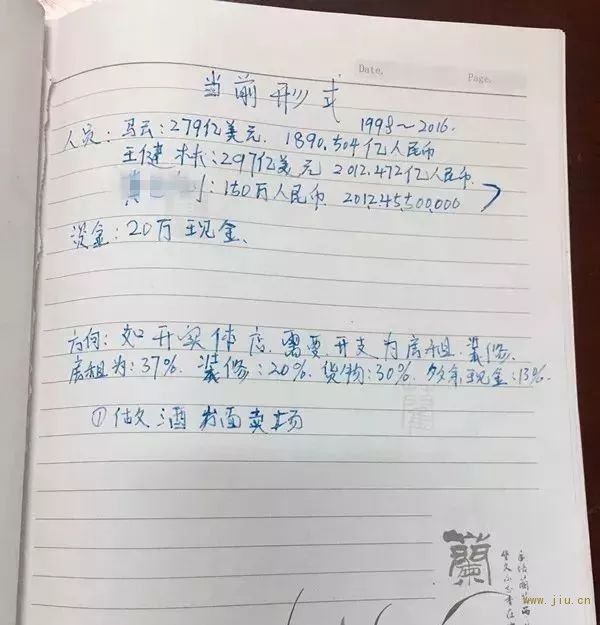 Date.
Page.
当前形式
1998~2016.
人员:马云:279亿美元. 1890.504亿人民币
王健林:297亿美元 2012.472亿人民币.
:150万人民币. 2012,45,500,000
资金:20万现金、
方向:如开实体店.需要开支为房租.装修.
房租为:37%. 装修:20%. 货物:30%. 多余现金:13%.
①做酒方面卖场
蘭
蘭
www.jiu.cn